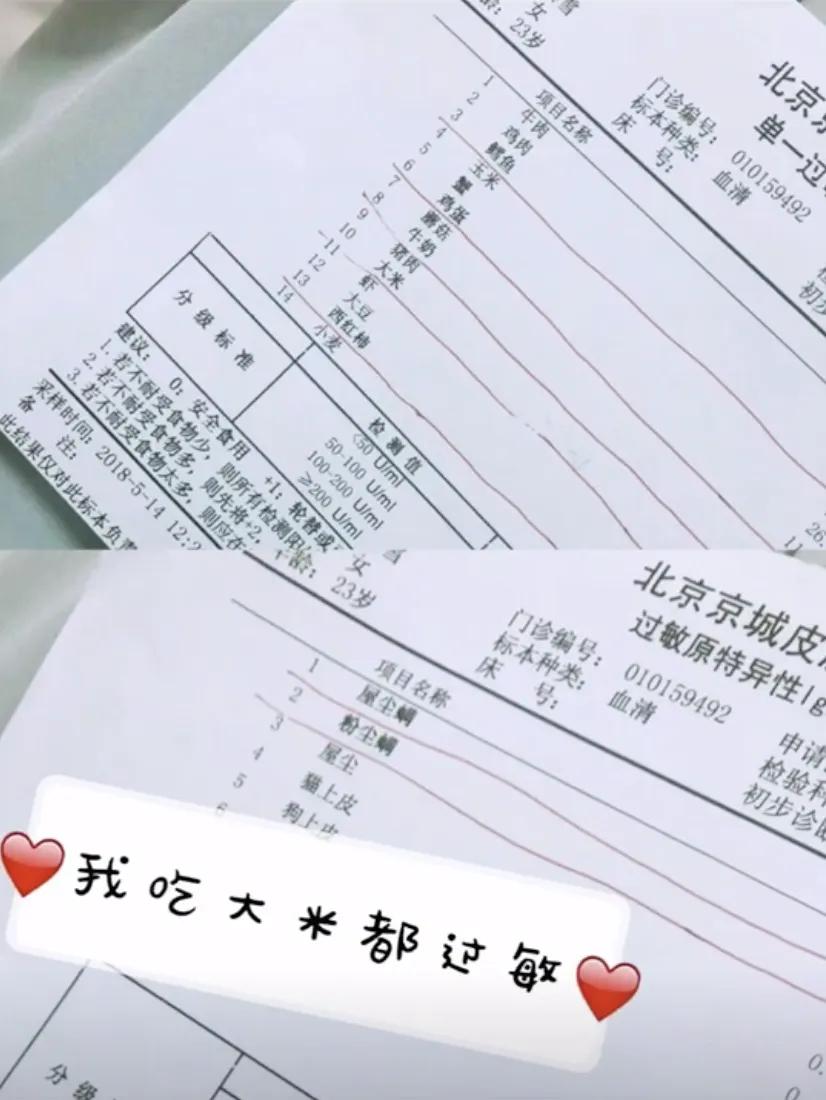 雪
女
龄：23岁
北京京
单一过
门诊编号：010159492
标本种类：血清
床 号：
初步
项目名称
1 牛肉
2 鸡肉
3 鳕鱼
4 玉米
5 蟹
6 鸡蛋
7 蘑菇
8 牛奶
9 猪肉
10 大米
11 虾
12 大豆
13 西红柿
14 小麦
26.
分级标准
检测值
<50 U/ml
50-100 U/ml
100-200 U/ml
≥200 U/ml
建议： 0：安全食用 +1：轮替或
1.若不耐受食物少，则所有检测阳
2.若不耐受食物多，则先将+2，
3.若不耐受食物太多，则应在
采样时间：2018-5-14 12:2
备 注：
此结果仅对此标本负责
女
龄：23岁
北京京城皮
过敏原特异性Ig
门诊编号：010159492
标本种类：血清
床 号：
申请
检验科
初步诊断
项目名称
1 屋尘螨
2 粉尘螨
3 屋尘
4 猫上皮
5 狗上皮
6
我吃大米都过敏
0.
0.
分级